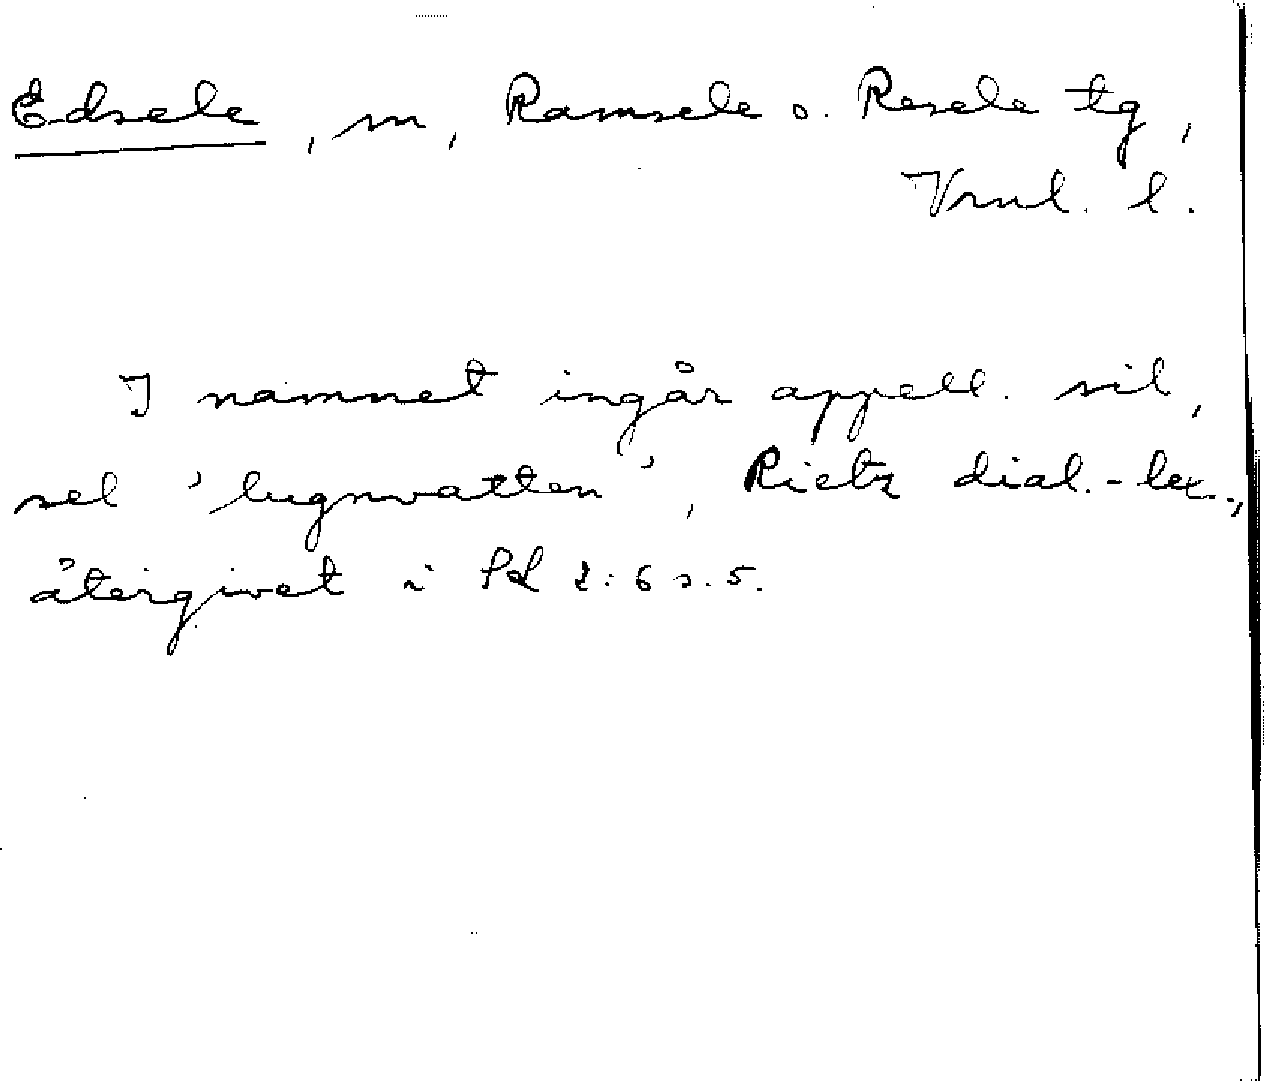 Edsele, sn, Ramsele o. Resele tg,
Vrnl. l.
I namnet ingår appell. sil,
sel 'lugnvatten', Rietz dial.-lex.,
återgivet i PL 2:6 s. 5.